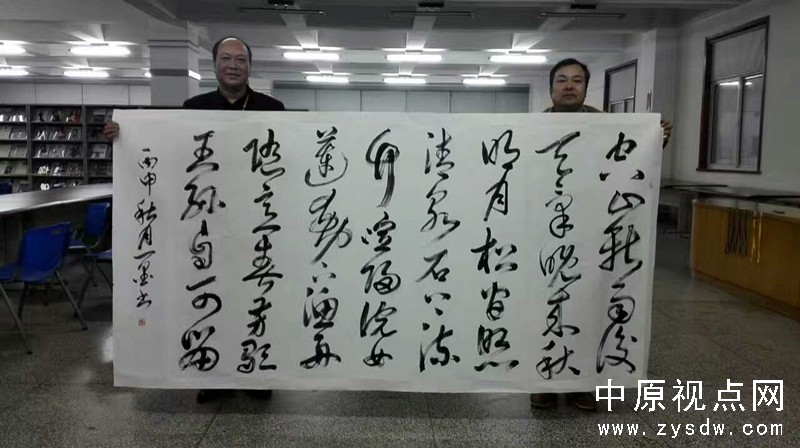 空山新雨後
天氣晚来秋
明月松間照
清泉石上流
竹喧歸浣女
蓮動下漁舟
隨意春芳歇
王孫自可留
丙申秋月一墨书
中原视点网
www.zysdw.com